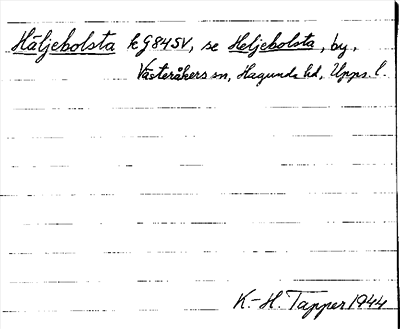 Häljebolsta k G84SV, se Heljebolsta, by,
Västeråkers sn, Hagunda hd, Upps. l.
K.-H. Tapper 1944